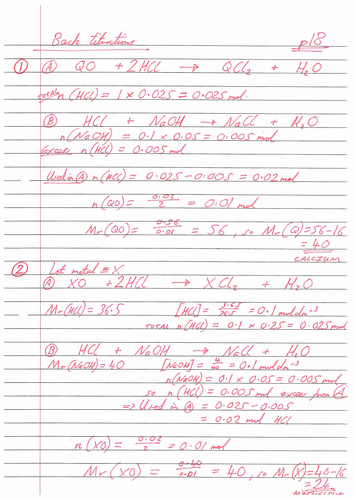 Back titrations p18
① Ⓐ QO + 2HCl → QCl₂ + H₂O
TOTAL n(HCl) = 1 × 0.025 = 0.025 mol
Ⓑ HCl + NaOH → NaCl + H₂O
n(NaOH) = 0.1 × 0.05 = 0.005 mol
Excess n(HCl) = 0.005 mol
Used in Ⓐ n(HCl) = 0.025 - 0.005 = 0.02 mol
n(QO) = 0.02/2 = 0.01 mol
Mr(QO) = 0.56/0.01 = 56, so Mr(Q) = 56-16
= 40
CALCIUM
② Let metal = X
Ⓐ XO + 2HCl → XCl₂ + H₂O
Mr(HCl) = 36.5 [HCl] = 3.65/36.5 = 0.1 mol dm⁻³
TOTAL n(HCl) = 0.1 × 0.25 = 0.025 mol
Ⓑ HCl + NaOH → NaCl + H₂O
Mr(NaOH) = 40 [NaOH] = 4/40 = 0.1 mol dm⁻³
n(NaOH) = 0.1 × 0.05 = 0.005 mol
so n(HCl) = 0.005 mol excess from Ⓐ
=> Used in Ⓐ = 0.025 - 0.005
= 0.02 mol HCl
n(XO) = 0.02/2 = 0.01 mol
Mr(XO) = 0.40/0.01 = 40, so Mr(X) = 40-16
= 24
MAGNESIUM